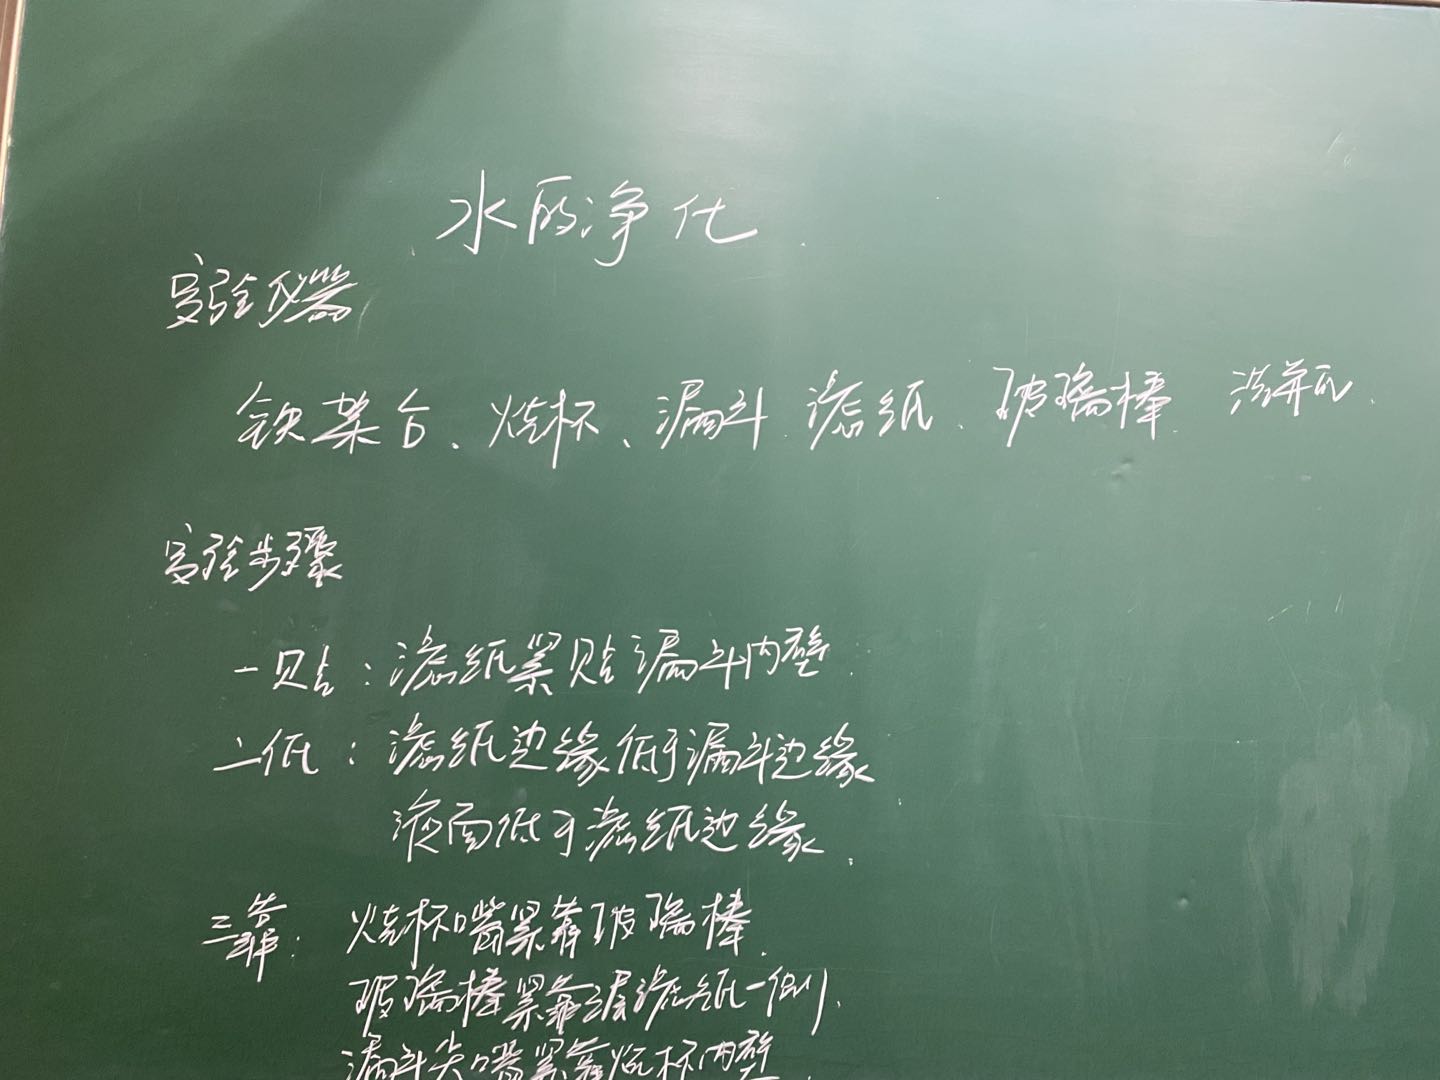 水的净化
实验仪器
铁架台、烧杯、漏斗 滤纸、玻璃棒 洗瓶
实验步骤
一贴：滤纸紧贴漏斗内壁
二低：滤纸边缘低于漏斗边缘
液面低于滤纸边缘
三靠：烧杯嘴紧靠玻璃棒
玻璃棒紧靠三层滤纸一侧
漏斗尖嘴紧靠烧杯内壁